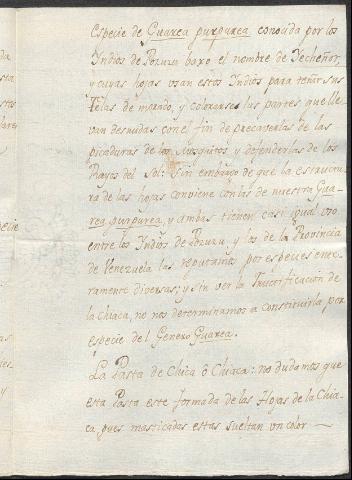 Especie de Guarea purpurea, conocida por los
Indios de Pozuzo baxo el nombre de Yecheñor,
y cuyas hojas usan estos Indios para teñir sus
telas de morado, y colorarse las partes que lle-
van desnudas con el fin de precaverlas de las
picaduras de los Mosquitos y defenderlas de los
Rayos del Sol: Sin embargo de que la estructu-
ra de las hojas conviene con las de nuestra Gua-
rea purpurea, y ambas tienen casi igual uso
entre los Indios de Pozuzo, y los de la Provincia
de Venezuela las reputamos por especies ente-
ramente diversas; y sin ver la fructificación de
la Chiaca, no nos determinamos a constituirla por
especie del Genero Guarea.
La Pasta de Chica ô Chiaca: no dudamos que
esta Pasta este formada de las Hojas de la Chia-
ca, pues masticadas estas sueltan un color